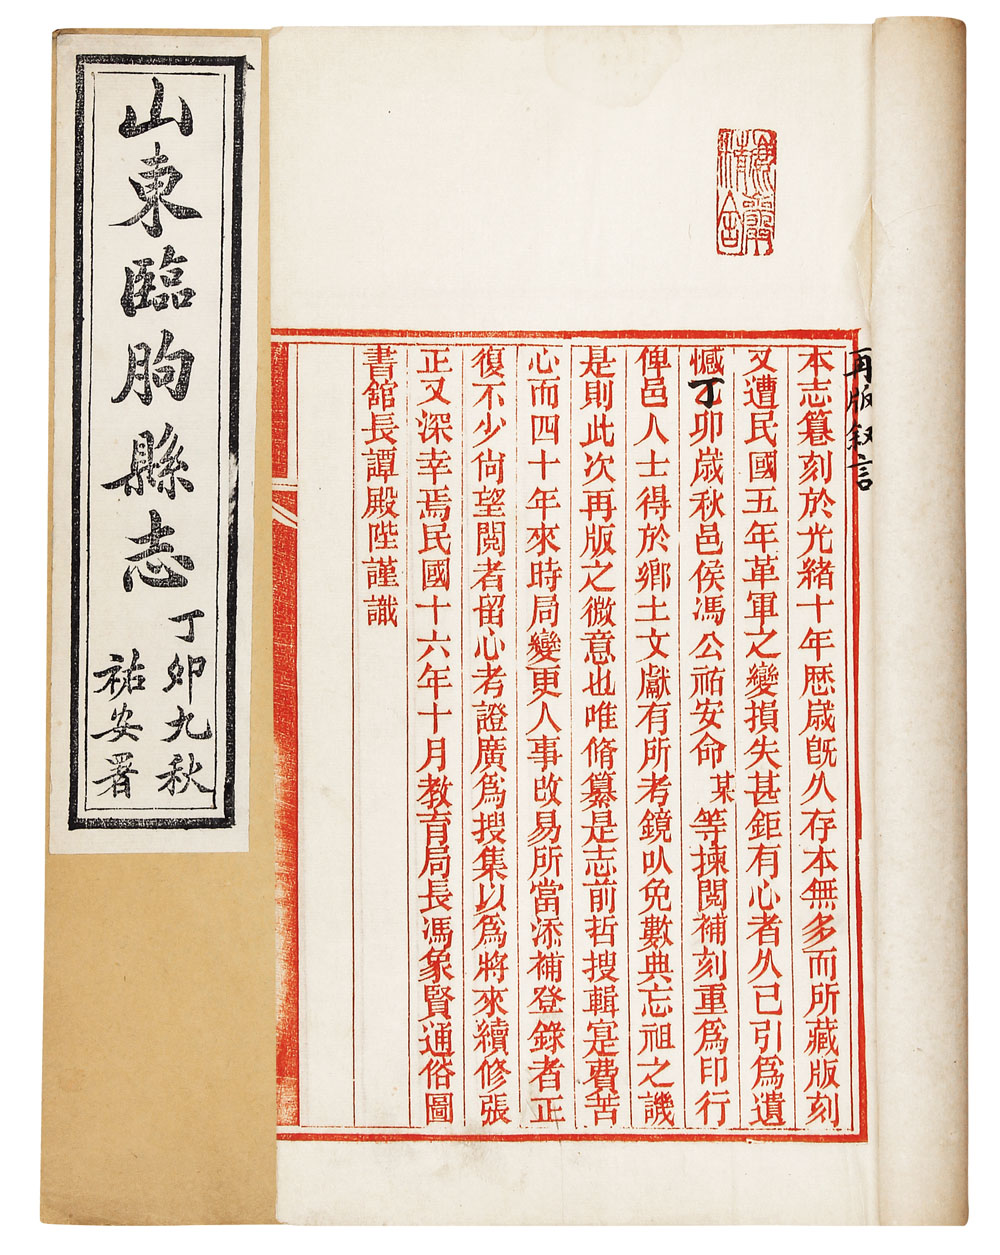 再版叙言
本志纂刻於光緒十年歷歲旣久存本無多而所藏版刻
又遭民國五年革軍之變損失甚鉅有心者久已引爲遺
憾丁卯歲秋邑侯馮公祐安命某等揀閱補刻重爲印行
俾邑人士得於鄉土文獻有所考鏡以免數典忘祖之譏
是則此次再版之微意也唯脩纂是志前哲搜輯寔費苦
心而四十年來時局變更人事改易所當添補登錄者正
復不少尙望閱者留心考證廣爲搜集以爲將來續修張
正又深幸焉民國十六年十月教育局長馮象賢通俗圖
書館長譚殿陛謹識
山東臨朐縣志
丁卯九秋
祐安署